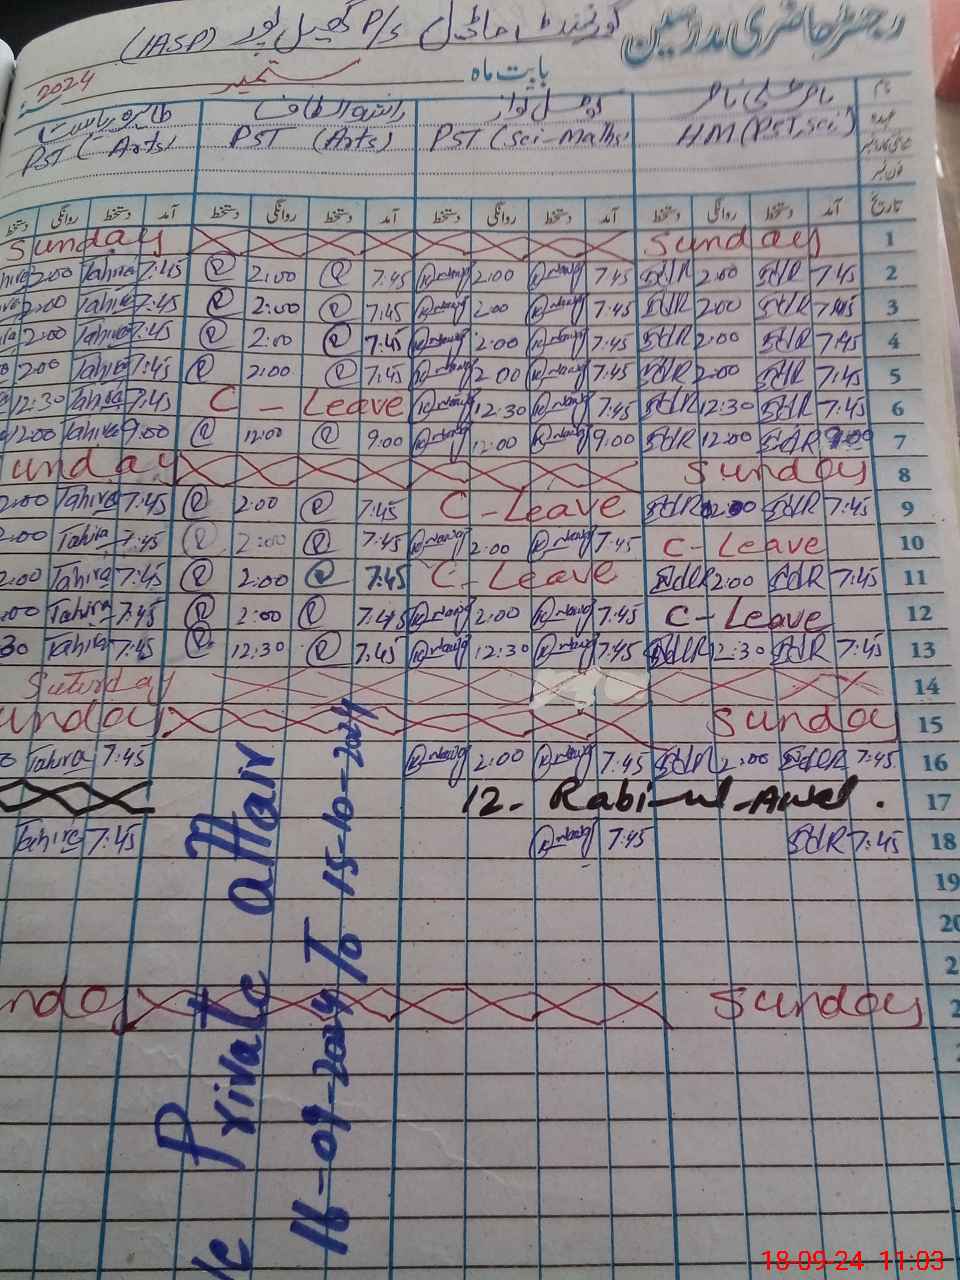 رجسٹر حاضری مدرسین
گورنمنٹ P/S (IASP)
بابت ماہ ستمبر 2024
نام
عہدہ
HM (PST, Sci) PST (Sci-Maths) PST (Arts) PST (Arts)
تاریخ آمد دستخط روانگی دستخط آمد دستخط روانگی دستخط آمد دستخط روانگی دستخط آمد دستخط روانگی دستخط
Sunday Sunday 1
2:00 Tahira 7:45 R 2:00 R 7:45 2:00 7:45 SdR 2:00 SdR 7:45 2
2:00 Tahira 7:45 R 2:00 R 7:45 2:00 7:45 SdR 2:00 SdR 7:45 3
2:00 Tahira 7:45 R 2:00 R 7:45 2:00 7:45 SdR 2:00 SdR 7:45 4
2:00 Tahira 7:45 R 2:00 R 7:45 2:00 7:45 SdR 2:00 SdR 7:45 5
12:30 Tahira 7:45 C - Leave 12:30 7:45 SdR 12:30 SdR 7:45 6
12:00 Tahira 9:00 R 12:00 R 9:00 12:00 9:00 SdR 12:00 SdR 9:00 7
unday Sunday 8
2:00 Tahira 7:45 R 2:00 R 7:45 C - Leave SdR SdR 7:45 9
:00 Tahira 7:45 R 2:00 R 7:45 2:00 7:45 C - Leave 10
2:00 Tahira 7:45 R 2:00 R 7:45 C - Leave SdR 2:00 SdR 7:45 11
:00 Tahira 7:45 R 2:00 R 7:45 2:00 7:45 C - Leave 12
30 Tahira 7:45 R 12:30 R 7:45 12:30 7:45 SdR 12:30 SdR 7:45 13
Saturday 14
unday Sunday 15
Tahira 7:45 2:00 7:45 SdR 2:00 SdR 7:45 16
12 - Rabi-ul-Awal . 17
Tahira 7:45 7:45 SdR 7:45 18
19
20
2
nday Sunday 2
Private attair
16-09-2024 To 15-10-2024
18-09-24 11:03